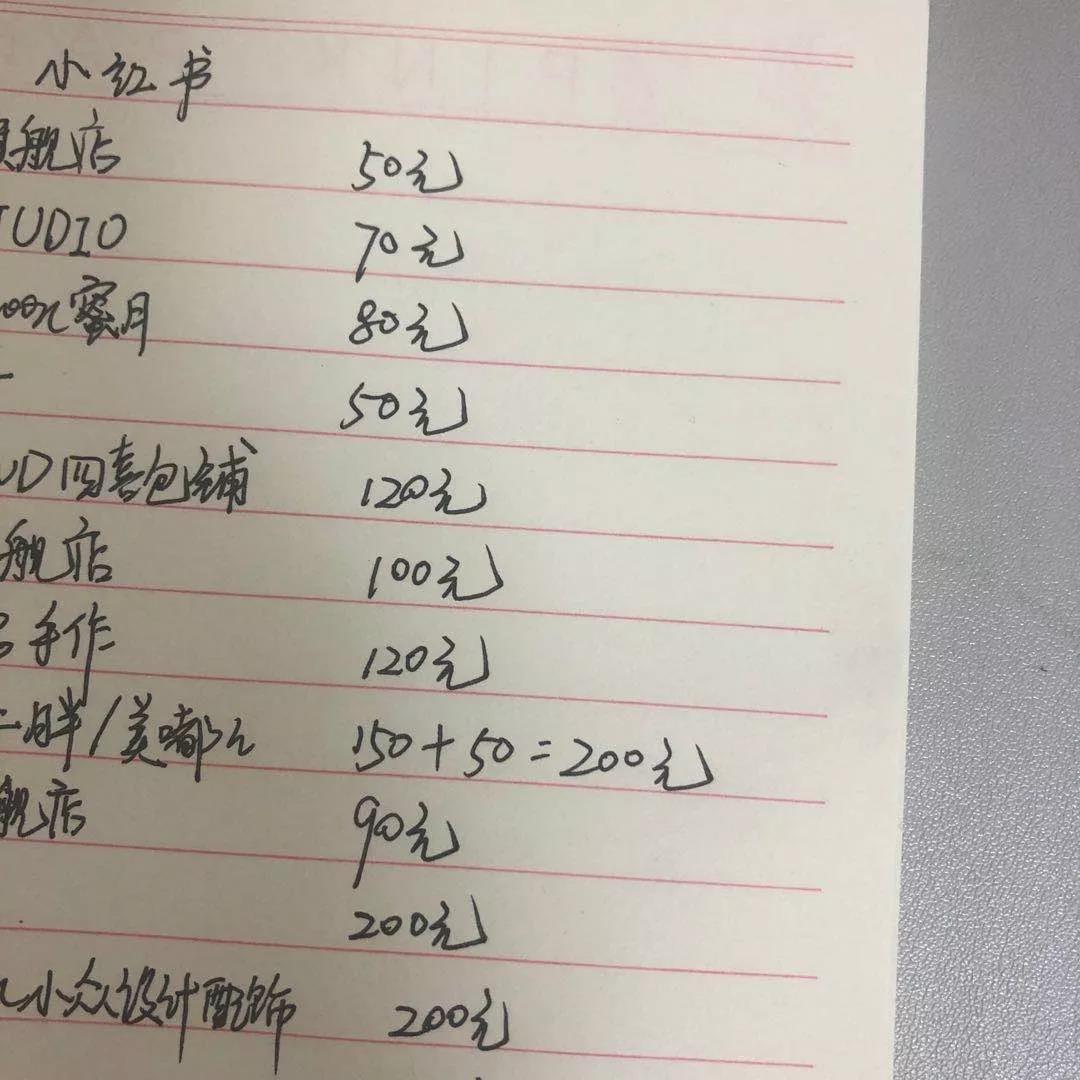 小红书
旗舰店 50元
TUDIO 70元
蜜月 80元
50元
UD四喜包铺 120元
舰店 100元
手作 120元
二胖/美嘟儿 150+50=200元
舰店 90元
200元
小众设计配饰 200元